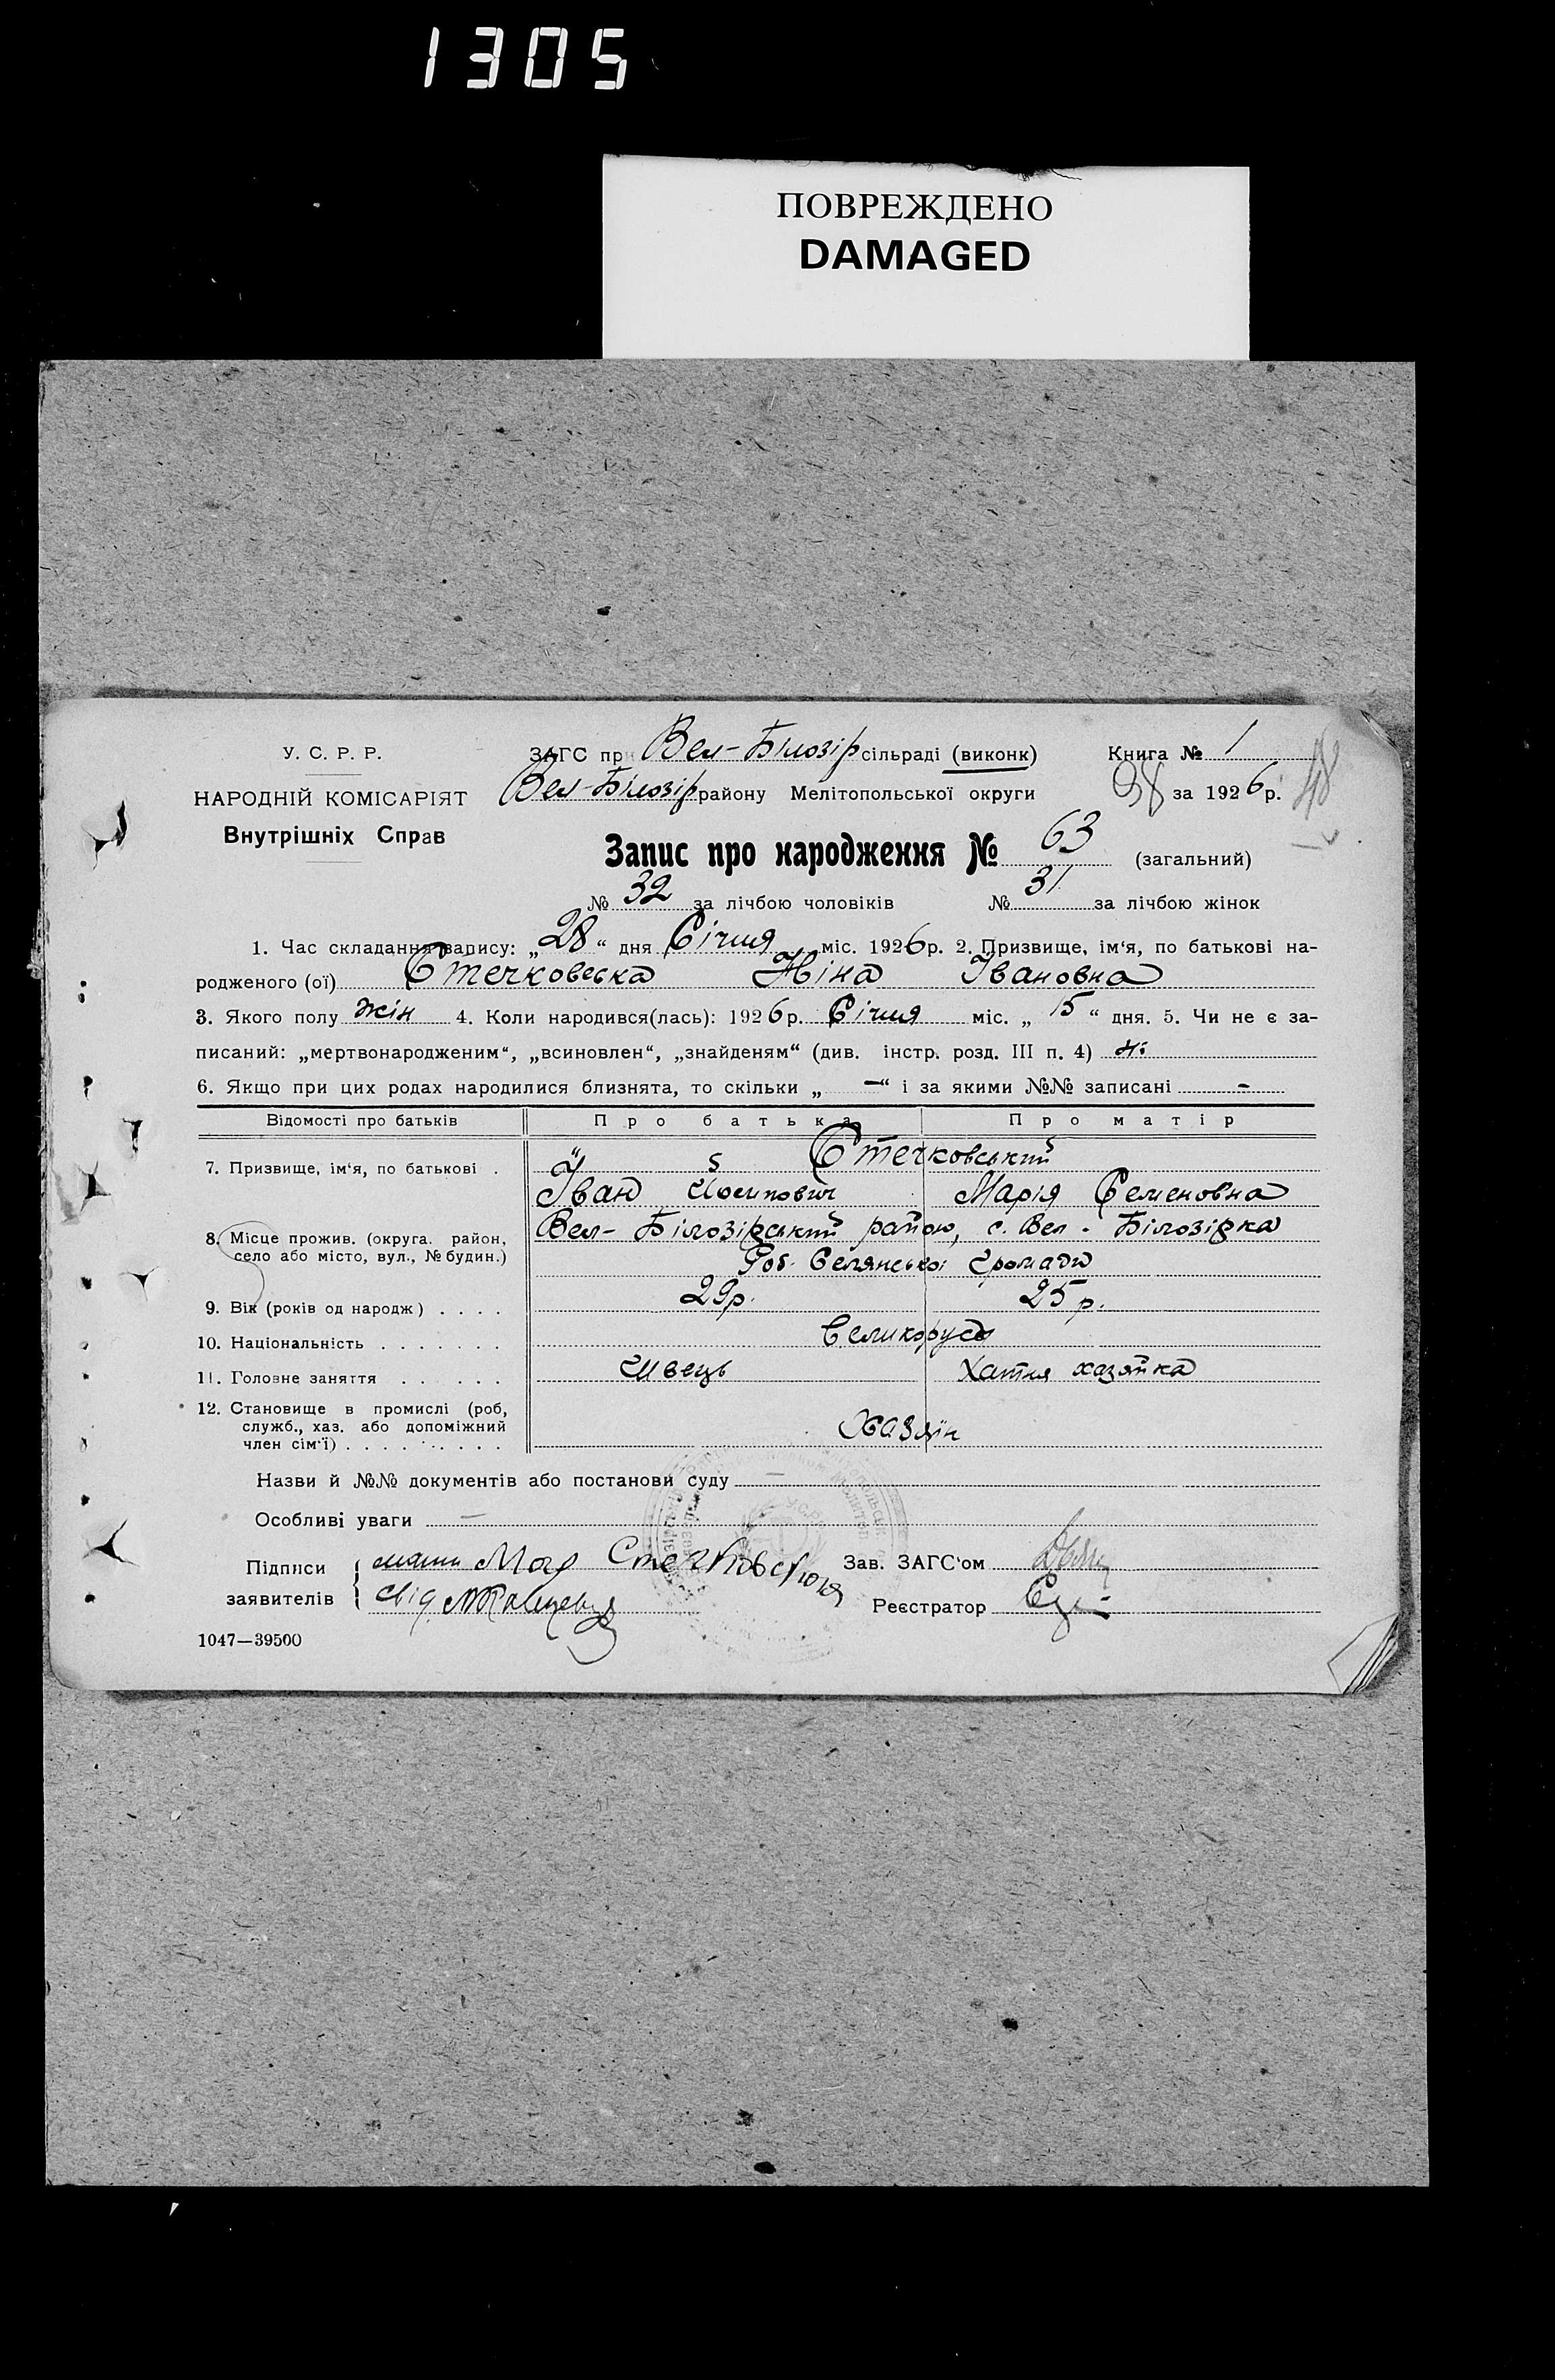 1305
ПОВРЕЖДЕНО
DAMAGED
У. С. Р. Р.
НАРОДНІЙ КОМІСАРІЯТ
Внутрішніх Справ
ЗАГС при Вел-Білозір сільраді (виконк)
Книга № 1
Вел-Білозір району Мелітопольської округи
38 за 1926 р.
48
Запис про народження № 63 (загальний)
№ 32 за лічбою чоловіків № 31 за лічбою жінок
1. Час складання запису: „28“ дня Січня міс. 1926 р. 2. Призвище, ім'я, по батькові на-
родженого (ої) Стечковська Ніна Івановна
3. Якого полу жін 4. Коли народився(лась): 1926 р. Січня міс. „15“ дня. 5. Чи не є за-
писаний: „мертвонародженим“, „всиновлен“, „знайденям“ (див. інстр. розд. III п. 4) ні
6. Якщо при цих родах народилися близнята, то скільки „ — “ і за якими №№ записані -
Відомості про батьків Про батька Про матір
7. Призвище, ім'я, по батькові . Стечковський
Іван Йосипович Марія Семеновна
8. Місце прожив. (округа. район,
село або місто, вул., № будин.)
Вел- Білозірський район, с. Вел - Білозірка
Роб. Селянської Громади
9. Вік (років од народж) . . . . 29р. 25р.
10. Національність . . . . . . . Великоруси
11. Головне заняття . . . . . . Швець Хатня хазяйка
12. Становище в промислі (роб,
служб., хаз. або допоміжний
член сім'ї) . . . . . . . . . Хазяїн
Назви й №№ документів або постанови суду —
Особливі уваги —
Підписи
заявителів
мати Стечковская
Зав. ЗАГС'ом
свід
Реєстратор
1047—39500